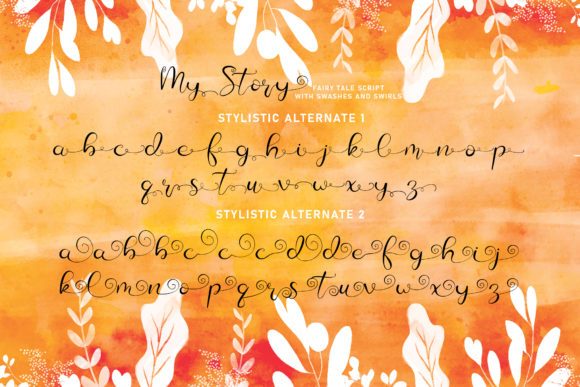 My Story
FAIRY TALE SCRIPT
WITH SWASHES AND SWIRLS
STYLISTIC ALTERNATE 1
a b c d e f g h i j k l m n o p
q r s t u v w x y z
STYLISTIC ALTERNATE 2
a a b b c c c d d e f g h i j
k l m n o p q r s t u v w x y z